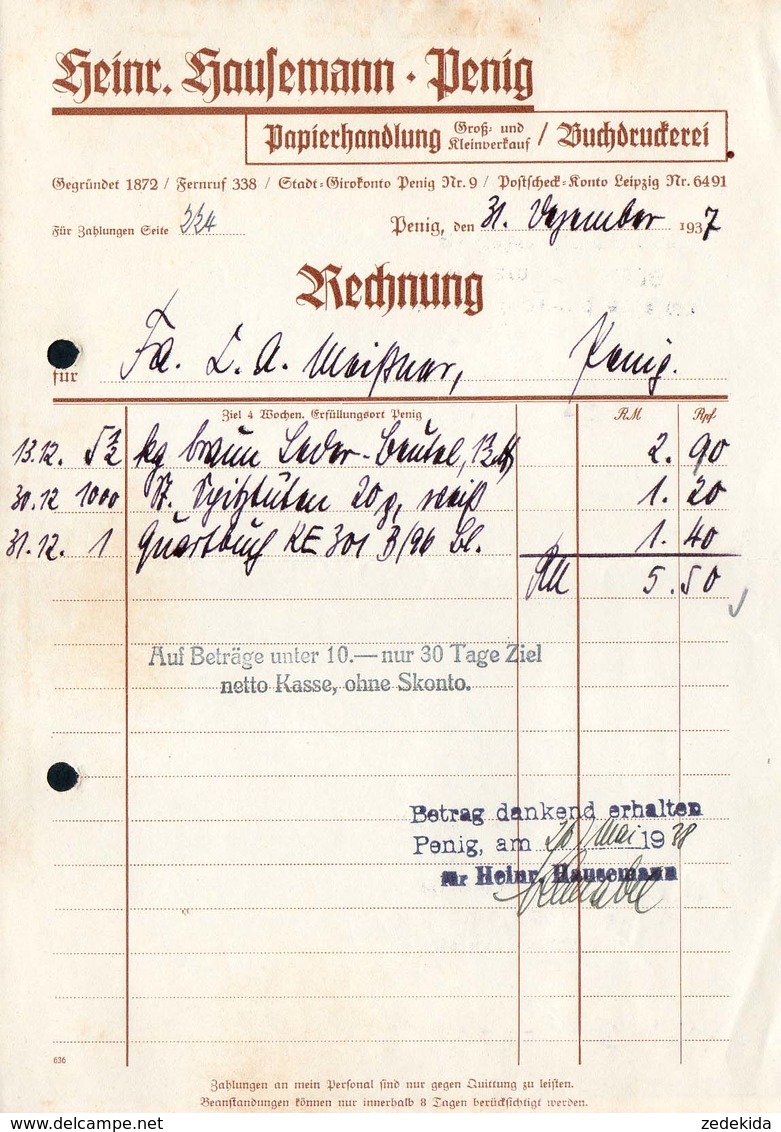 Heinr. Hausemann · Penig
Papierhandlung Groß- und Kleinverkauf / Buchdruckerei
Gegründet 1872 / Fernruf 338 / Stadt-Girokonto Penig Nr. 9 / Postscheck-Konto Leipzig Nr. 6491
Für Zahlungen Seite 334 Penig, den 31. Dezember 1937
Rechnung
für Fa. L. A. Meißner, Penig.
Ziel 4 Wochen. Erfüllungsort Penig RM Rpf
13.12. 5 1/2 kg braun Leder-Beutel, 2. 90
30.12 1000 St. Spitztüten 20 g, weiß 1. 20
31.12. 1 Quartbuch KE 301 B/96 Bl. 1. 40
RM 5. 50
Auf Beträge unter 10.— nur 30 Tage Ziel
netto Kasse, ohne Skonto.
Betrag dankend erhalten
Penig, am 20/Mai 1938
für Heinr. Hausemann
636
Zahlungen an mein Personal sind nur gegen Quittung zu leisten.
Beanstandungen können nur innerhalb 8 Tagen berücksichtigt werden.
zedekida